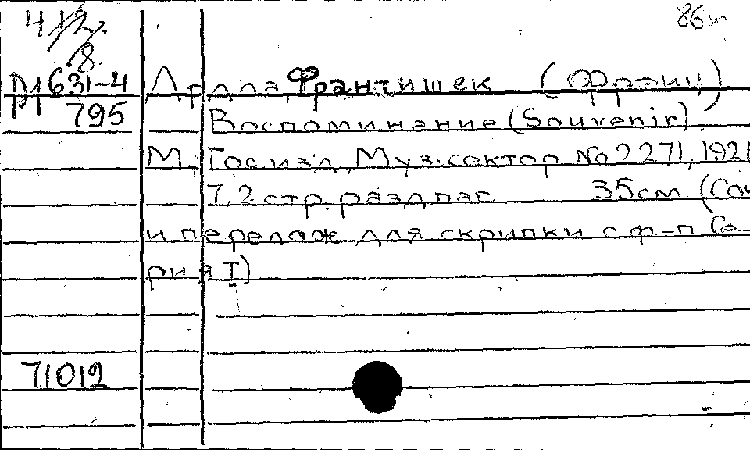 412.
8.
631-4
795
86
Ардла, Франтишек (Франц)
Воспоминание (Souvenir).
М., Госизд. Муз.сектор No 2271, 1921
7,2 стр. разд паг 35см (Соч
и перелож для скрипки с ф-п Се-
рия I)
71012